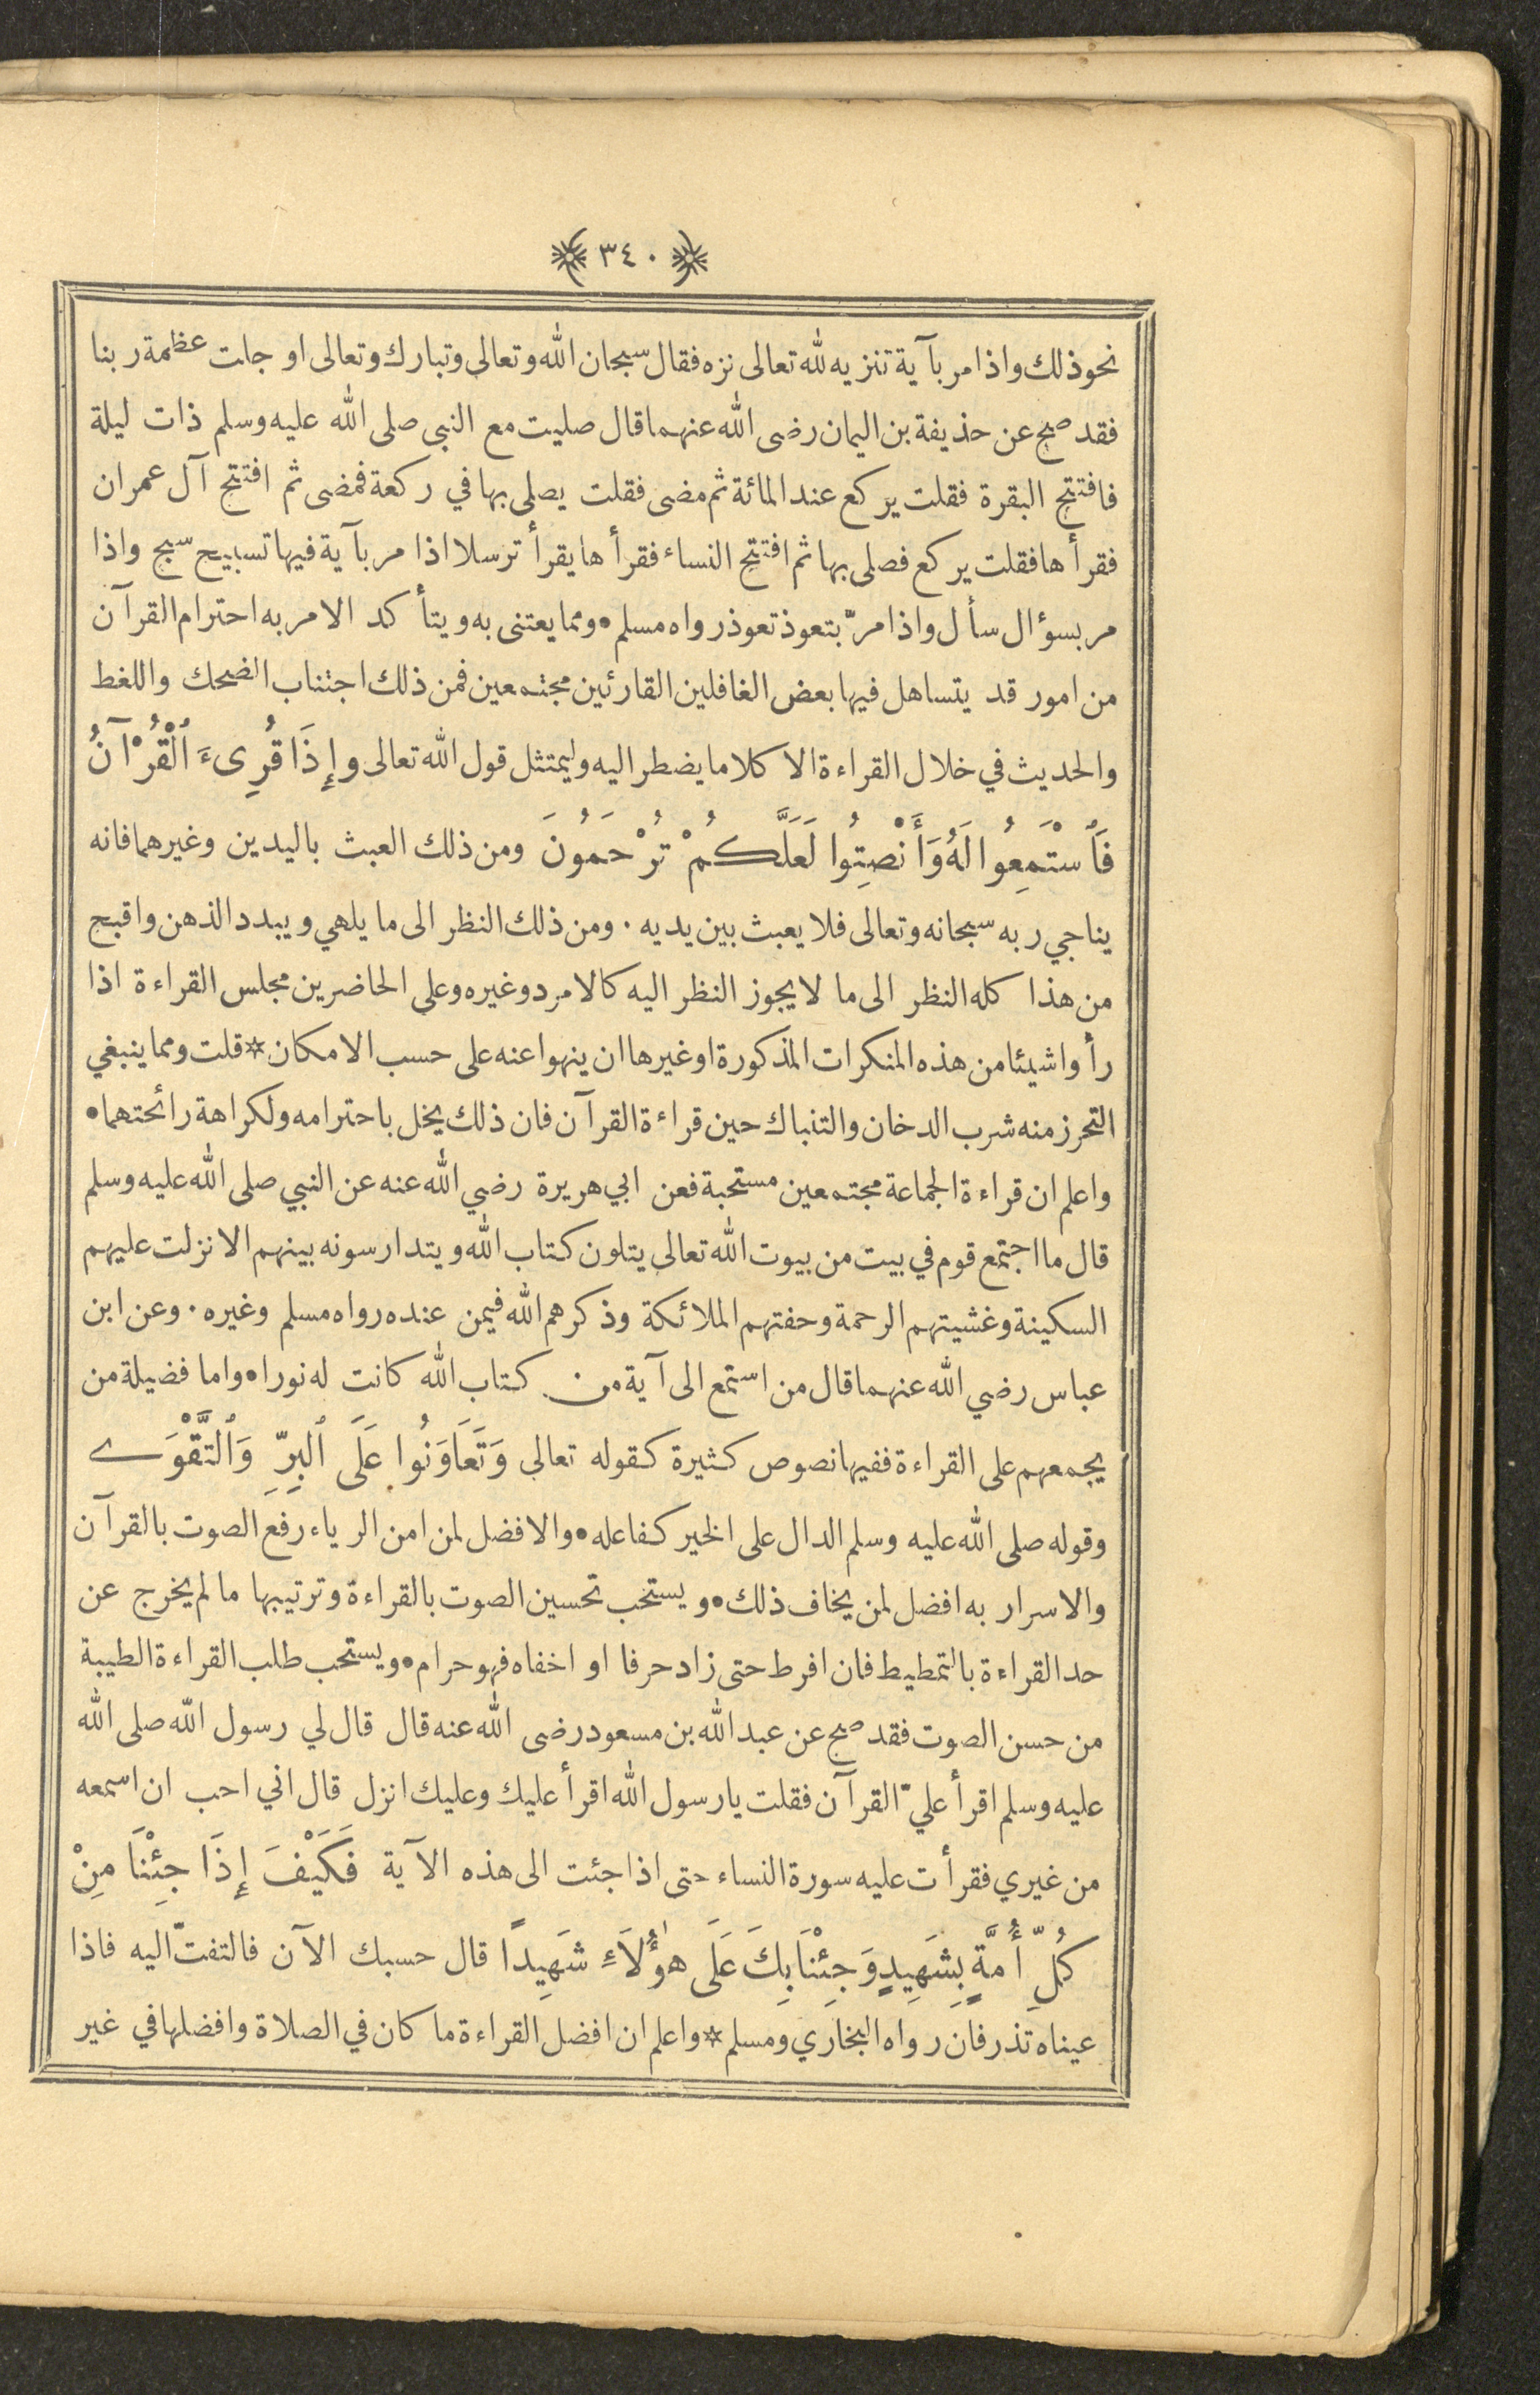 ﴿ ٣٤٠ ﴾
نحو ذلك واذا مر بآية تنزيه لله تعالى نزه فقال سبحان الله وتعالى وتبارك وتعالى او جلت عظمة ربنا
فقد صح عن حذيفة بن اليمان رضى الله عنهما قال صليت مع النبي صلى الله عليه وسلم ذات ليلة
فافتتح البقرة فقلت يركع عند المائة ثم مضى فقلت يصلى بها في ركعة فمضى ثم افتتح آل عمران
فقرأها فقلت يركع فصلى بها ثم افتتح النساء فقرأها يقرأ ترسلا اذا مر بآية فيها تسبيح سبح واذا
مر بسؤال سأل واذا مرّ بتعوذ تعوذ رواه مسلم • ومما يعتنى به ويتأكد الامر به احترام القرآن
من امور قد يتساهل فيها بعض الغافلين القارئين مجتمعين فمن ذلك اجتناب الضحك واللغط
والحديث في خلال القراءة الا كلاما يضطر اليه وليمتثل قول الله تعالى وإِذَا قُرِىءَ ٱلْقُرْآنُ
فَٱسْتَمِعُوا لَهُ وَأَنْصِتُوا لَعَلَّكُمْ تُرْحَمُونَ ومن ذلك العبث باليدين وغيرهما فانه
يناجي ربه سبحانه وتعالى فلا يعبث بين يديه . ومن ذلك النظر الى ما يلهي ويبدد الذهن واقبح
من هذا كله النظر الى ما لا يجوز النظر اليه كالامرد وغيره وعلى الحاضرين مجلس القراءة اذا
رأوا شيئا من هذه المنكرات المذكورة او غيرها ان ينهوا عنه على حسب الامكان * قلت ومما ينبغي
التحرز منه شرب الدخان والتنباك حين قراءة القرآن فان ذلك يخل باحترامه ولكراهة رائحتهما •
واعلم ان قراءة الجماعة مجتمعين مستحبة فعن ابي هريرة رضي الله عنه عن النبي صلى الله عليه وسلم
قال ما اجتمع قوم في بيت من بيوت الله تعالى يتلون كتاب الله ويتدارسونه بينهم الا نزلت عليهم
السكينة وغشيتهم الرحمة وحفتهم الملائكة وذكرهم الله فيمن عنده رواه مسلم وغيره . وعن ابن
عباس رضي الله عنهما قال من استمع الى آية من كتاب الله كانت له نورا • واما فضيلة من
يجمعهم على القراءة ففيها نصوص كثيرة كقوله تعالى وَتَعَاوَنُوا عَلَى ٱلبِرِّ وَٱلتَّقْوَے
وقوله صلى الله عليه وسلم الدال على الخير كفاعله • والافضل لمن امن الرياء رفع الصوت بالقرآن
والاسرار به افضل لمن يخاف ذلك • ويستحب تحسين الصوت بالقراءة وترتيبها ما لم يخرج عن
حد القراءة بالتمطيط فان افرط حتى زاد حرفا او اخفاه فهو حرام • ويستحب طلب القراءة الطيبة
من حسن الصوت فقد صح عن عبد الله بن مسعود رضى الله عنه قال قال لي رسول الله صلى الله
عليه وسلم اقرأ عليّ القرآن فقلت يا رسول الله اقرأ عليك وعليك انزل قال اني احب ان اسمعه
من غيري فقرأت عليه سورة النساء حتى اذا جئت الى هذه الآية فَكَيْفَ إِذَا جِئْنَا مِنْ
كُلِّ أُمَّةٍ بِشَهِيدٍ وَجِئْنَا بِكَ عَلَى هٰؤُلَاءِ شَهِيدًا قال حسبك الآن فالتفتّ اليه فاذا
عيناه تذرفان رواه البخاري ومسلم * واعلم ان افضل القراءة ما كان في الصلاة وافضلها في غير